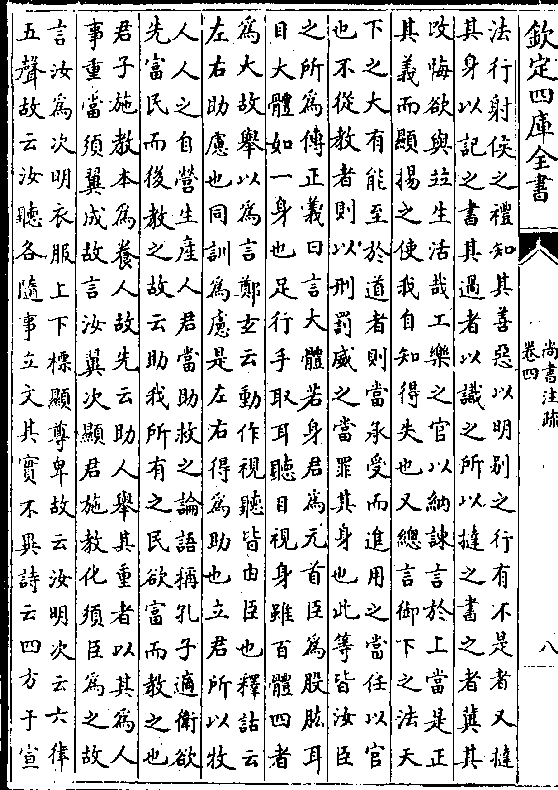 欽定四庫全書
尚書注疏
卷四
八
法行射侯之禮知其善惡以明別之行有不是者又撻
其身以記之書其過者以識之所以撻之書之者冀其
改悔欲與並生活哉工樂之官以納諫言於上當是正
其義而顯揚之使我自知得失也又總言御下之法天
下之大有能至於道者則當承受而進用之當任以官
也不從教者則以刑罰威之當罪其身也此等皆汝臣
之所為傳正義曰言大體若身君為元首臣為股肱耳
目大體如一身也足行手取耳聽目視身雖百體四者
為大故舉以為言鄭玄云動作視聽皆由臣也釋詁云
左右助慮也同訓為慮是左右得為助也立君所以牧
人人之自營生產人君當助救之論語稱孔子適衛欲
先富民而後教之故云助我所有之民欲富而教之也
君子施教本為養人故先云助人舉其重者以其為人
事重當須翼成故言汝翼次顯君施教化須臣為之故
言汝為次明衣服上下標顯尊卑故云汝明次云六律
五聲故云汝聽各隨事立文其實不異詩云四方于宣